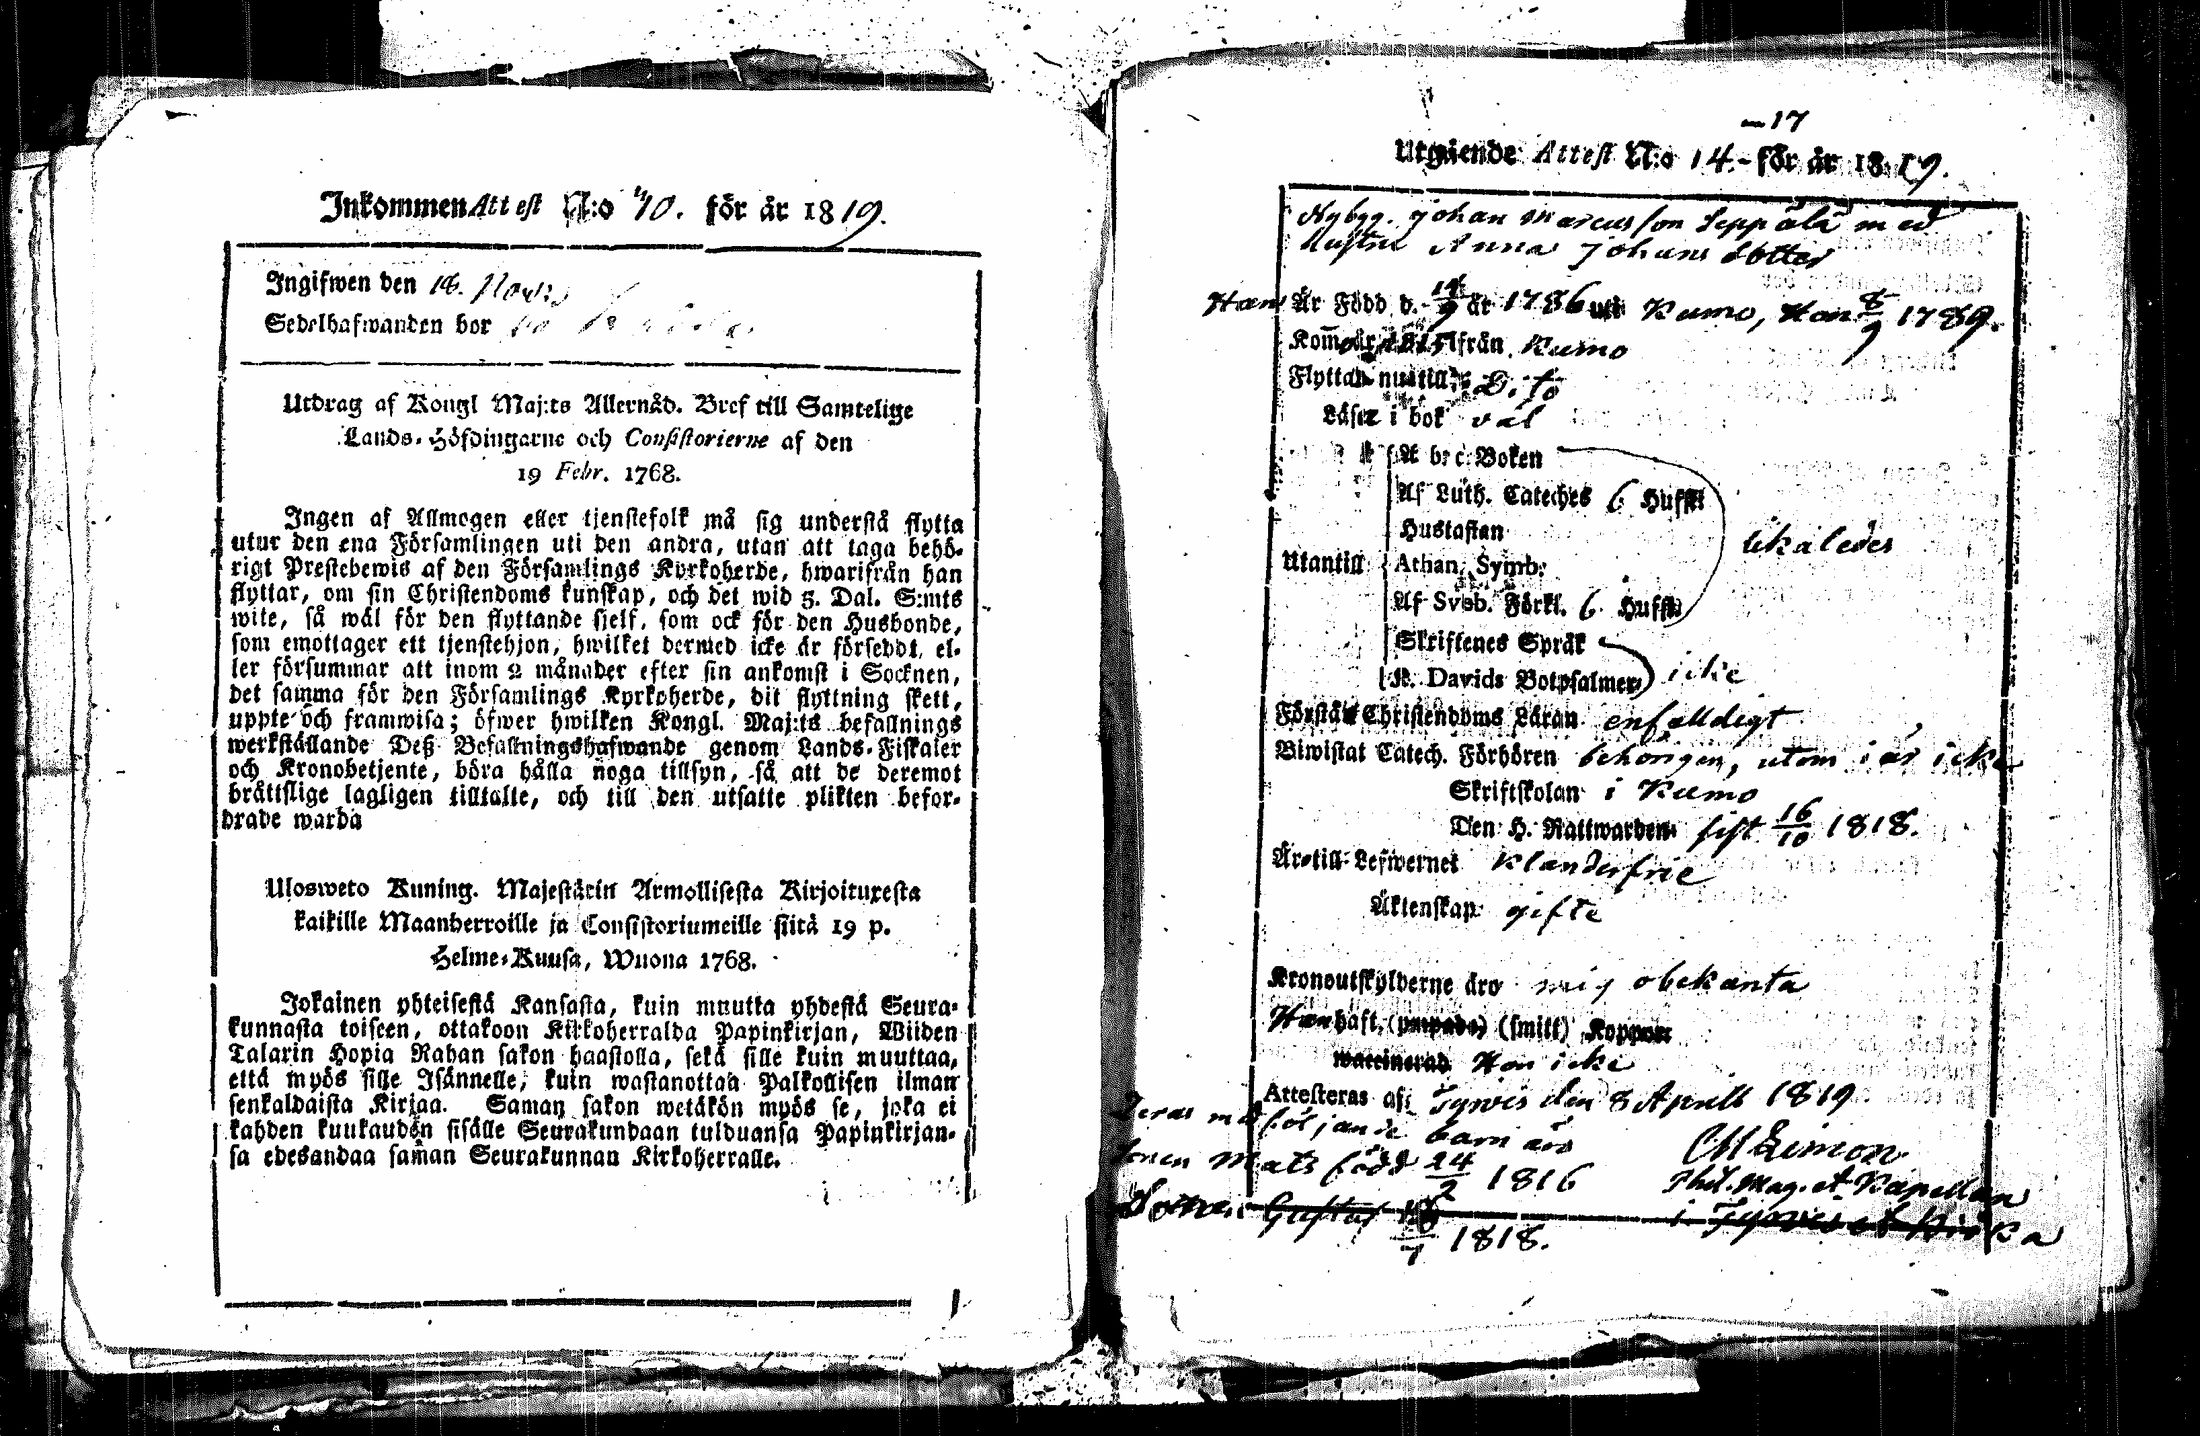 Inkommen Attest N:o 40. för år 1819.
Ingifwen den 18.
Sedelhafwanden bor
Utdrag af Kongl Maj:ts Allernåd. Bref till Samtelige
Lands-Höfdingarne och Consistorierne af den
19 Febr. 1768.
Ingen af Allmogen eller tjenstefolk må sig understå flytta
utur den ena Församlingen uti den andra, utan att taga behö-
rigt Prestebewis af den Församlings Kyrkoherde, hwarifrån han
flyttar, om sin Christendoms kunskap, och det wid 5. Dal. S:mts
wite, så wäl för den flyttande sjelf, som ock för den Husbonde,
som emottager ett tjenstehjon, hwilket dermed icke är försedt, el-
ler försummar att inom 2 månader efter sin ankomst i Socknen,
det samma för den Församlings Kyrkoherde, dit flyttning skett,
uppte och framwisa; öfwer hwilken Kongl. Maj:ts befallnings
werkställande Deß Befallningshafwande genom Lands-Fiskaler
och Kronobetjente, böra hålla noga tillsyn, så att de deremot
bråttslige lagligen tilltalte, och till den utsatte plikten befor-
drade warda
Ulosweto Kuning. Majestätin Armollisesta Kirjoituxesta
kaikille Maanherroille ja Consistoriumeille siitä 19 p.
Helme-Kuusa, Wuona 1768.
Jokainen yhteisestä Kansasta, kuin muutta yhdestä Seura-
kunnasta toiseen, ottakoon Kirkoherralda Papinkirjan, Wiiden
Talarin Hopia Rahan sakon haastolla, sekä sille kuin muuttaa,
että myös sille Isännelle, kuin wastanottaa Palkollisen ilman
senkaldaista Kirjaa. Saman sakon wetäkön myös se, joka ei
kahden kuukauden sisälle Seurakundaan tulduansa Papinkirjan-
sa edesandaa saman Seurakunnan Kirkoherralle.
17
Utgående Attest N:o 14. för år 1819.
Nybygg. Johan Marcusson Seppälä med
Hustru Anna Johans dotter
Han Är Född d. 14/9 år 1786 uti Kumo, Hon 8/9 1789.
Kom̄ år 1815 ifrån Kumo
Flyttar nu till Dito
Läser i bok väl
A b c Boken
Af Luth. Cateches 6 Hufst
Hustaflan
Utantill Athan. Symb. likaledes
Af Sveb. Förkl. 6 Hufst
Skriftenes Språk
K. Davids Botpsalmer icke
Förstår Christendoms Läran enfalldigt
Biwistat Catech. Förhören behörigen, utom i år icke
Skriftskolan i Kumo
Den H. Nattwarden sist 16/10 1818.
Är till Lefwernet klanderfrie
Äktenskap gifte
Kronoutskylderne äro mig obekanta
Han haft (smitt) Koppor
waccinerad Hon icke
Attesteras af Tyrvis den 8 Aprill 1819
Deras medföljande barn äro
Sonen Mats född 24/2 1816
CM Limon
Phil. Mag. et Kapellan
Sonen Gustaf 18/7 1818.
i Tyrvis et Kiika